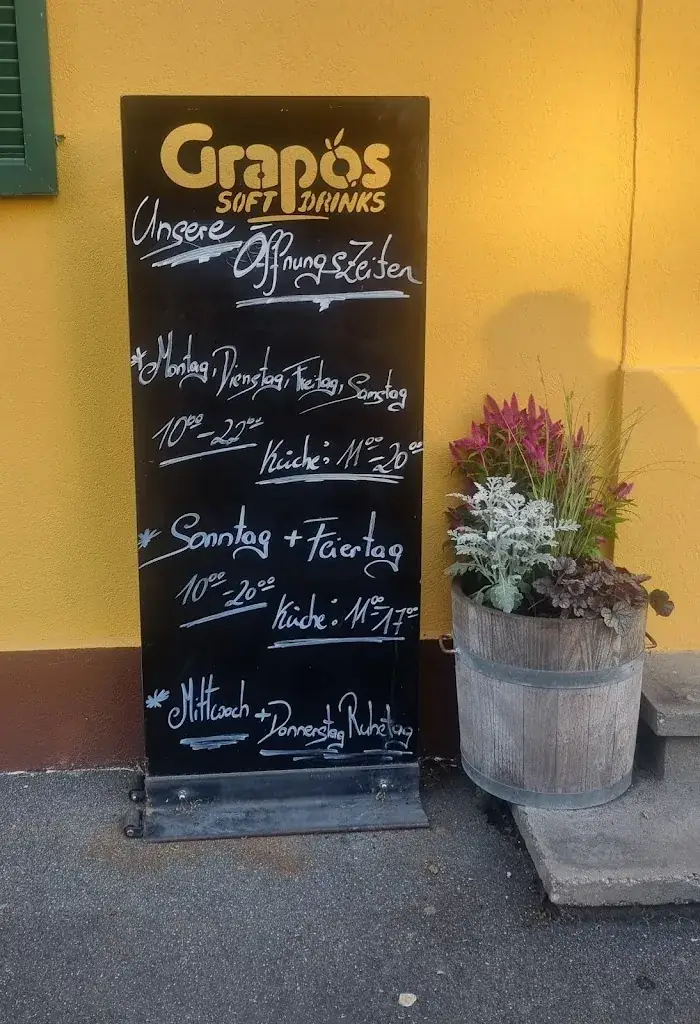 Grapos
SOFT DRINKS
Unsere
ÖffnungsZeiten
*Montag, Dienstag, Freitag, Samstag
10⁰⁰-22⁰⁰
Küche: 11⁰⁰-20⁰⁰
* Sonntag + Feiertag
10⁰⁰-20⁰⁰
Küche: 11⁰⁰-17⁰⁰
* Mittwoch + Donnerstag Ruhetag